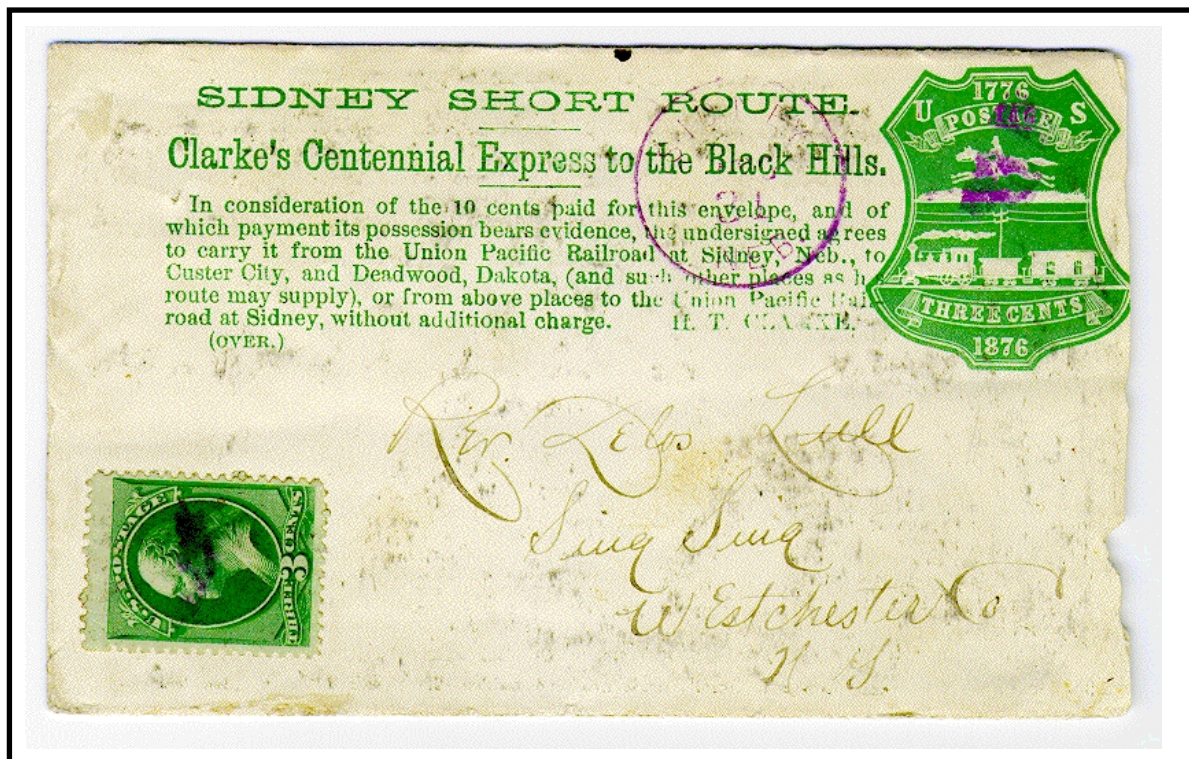 SIDNEY SHORT ROUTE.
Clarke's Centennial Express to the Black Hills.
In consideration of the 10 cents paid for this envelope, and of
which payment its possession bears evidence, the undersigned agrees
to carry it from the Union Pacific Railroad at Sidney, Neb., to
Custer City, and Deadwood, Dakota, (and such other places as h
route may supply), or from above places to the Union Pacific Rail-
road at Sidney, without additional charge. H. T. CLARKE.
(OVER.)
1776
U S
POSTAGE
THREE CENTS
1876
21
NEB.
Rev. Delos Lull
Sing Sing
Westchester Co
N. Y.
U.S. POSTAGE
THREE 3 CENTS